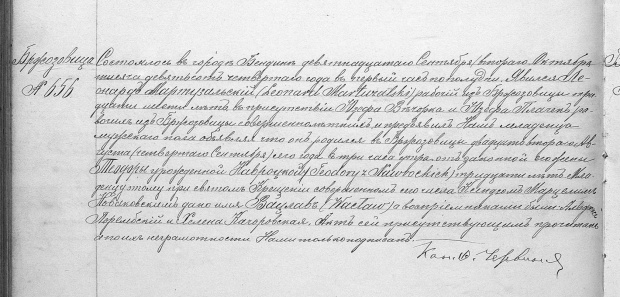 Бржозовица
№ 656
Состоялось въ городѣ Бендинѣ девятнадцатаго Сентября /втораго Октября/
тысяча девятьсотъ четвертаго года въ первый часъ пополудни. Явился Ле-
онардъ Марцизальскій (Leonard Marcizalski) рабочій изъ Бржозовицы три-
дцати шести лѣтъ въ присутствіи Вѣчорка и ра-
бочихъ изъ Бржозовицы совершеннолѣтнихъ и предъявилъ Намъ младенца
мужескаго пола объявляя что онъ родился въ Бржозовицѣ двадцать втораго Ав-
густа /четвертаго Сентября/ сего года въ три часа утра, отъ законной его жены
Теодоры урожденной Навроцкой (Teodory Nawrockich) тридцати лѣтъ. Мла-
денцу этому при святомъ Крещеніи совершенномъ сего числа Ксендзомъ Марцелимъ
дано имя Вацлавъ (Wacław) а воспріемниками были
и Хелена Нагоровская. Актъ сей присутствующимъ прочитанъ
по ихъ неграмотности Нами только подписанъ.